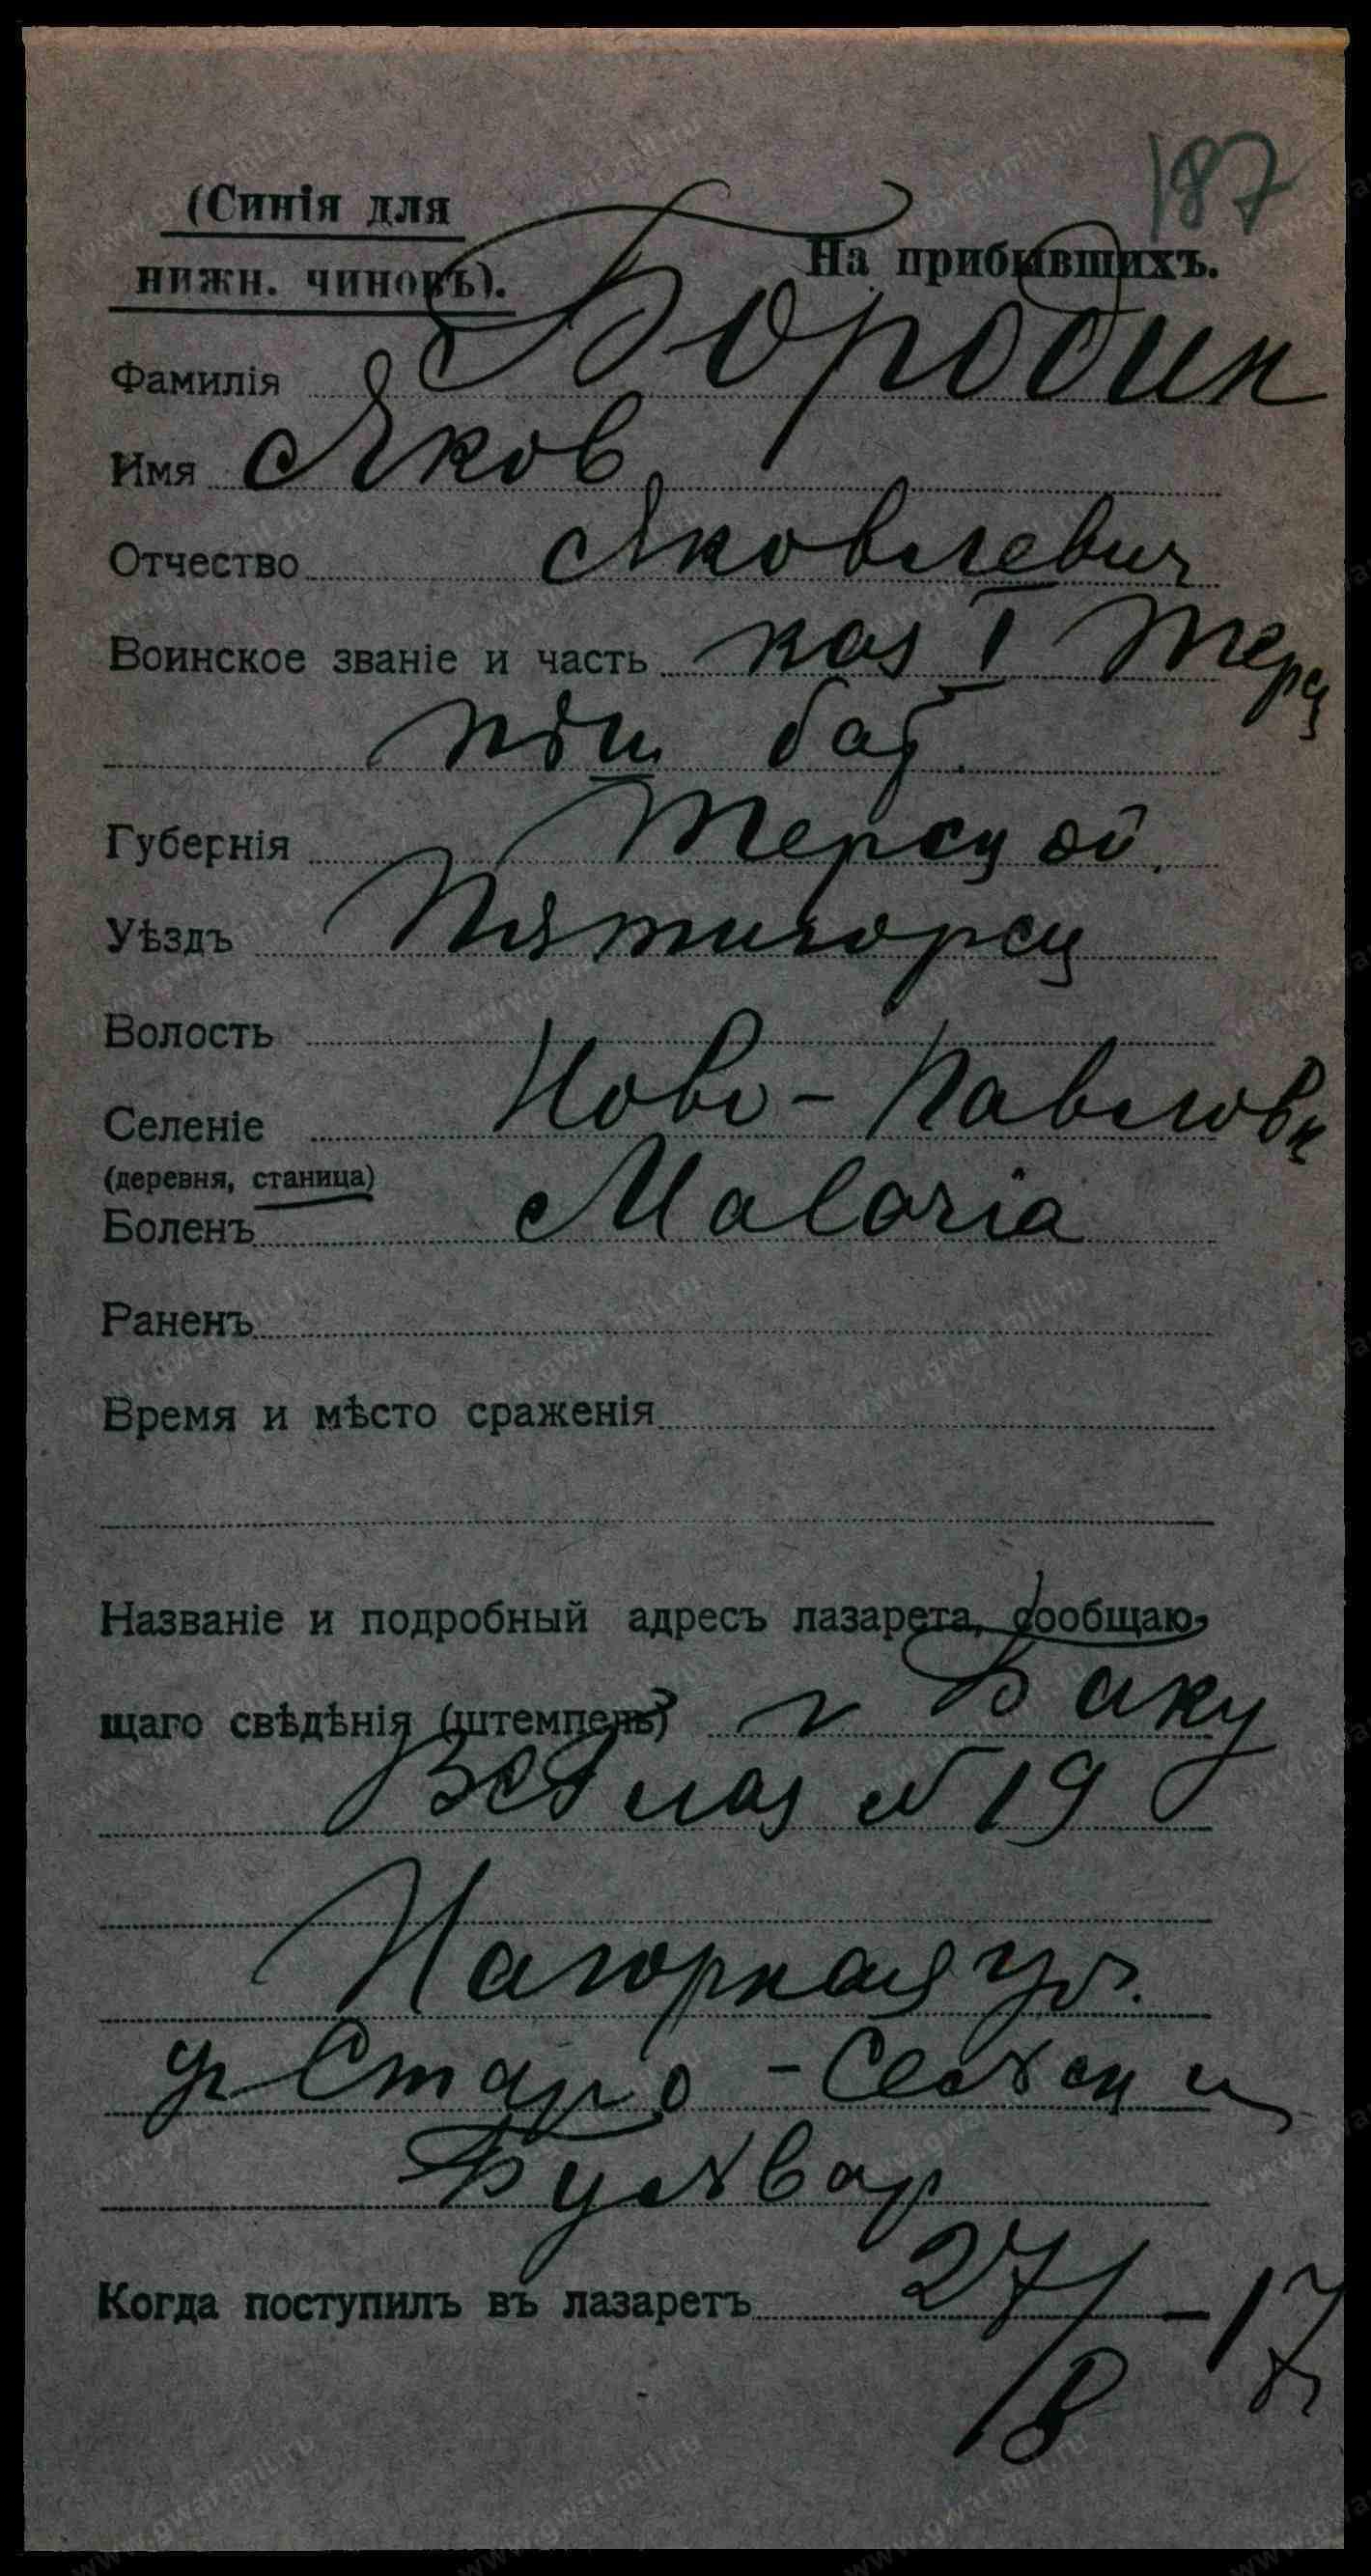 187
(Синія для
нижн. чиновъ).
На прибывшихъ.
Фамилія Бородин
Имя Яков
Отчество Яковлевич
Воинское званіе и часть каз I Терц
бат
Губернія Терской
Уѣздъ Пятигорск
Волость
Селеніе Ново-Павловк
(деревня, станица)
Боленъ Malaria
Раненъ
Время и мѣсто сраженія
Названіе и подробный адресъ лазарета, сообщаю-
щаго свѣдѣнія (штемпель) г Баку
лаз № 19
Нагорная ул.
Старо-
Бульвар
Когда поступилъ въ лазаретъ 27/8-17